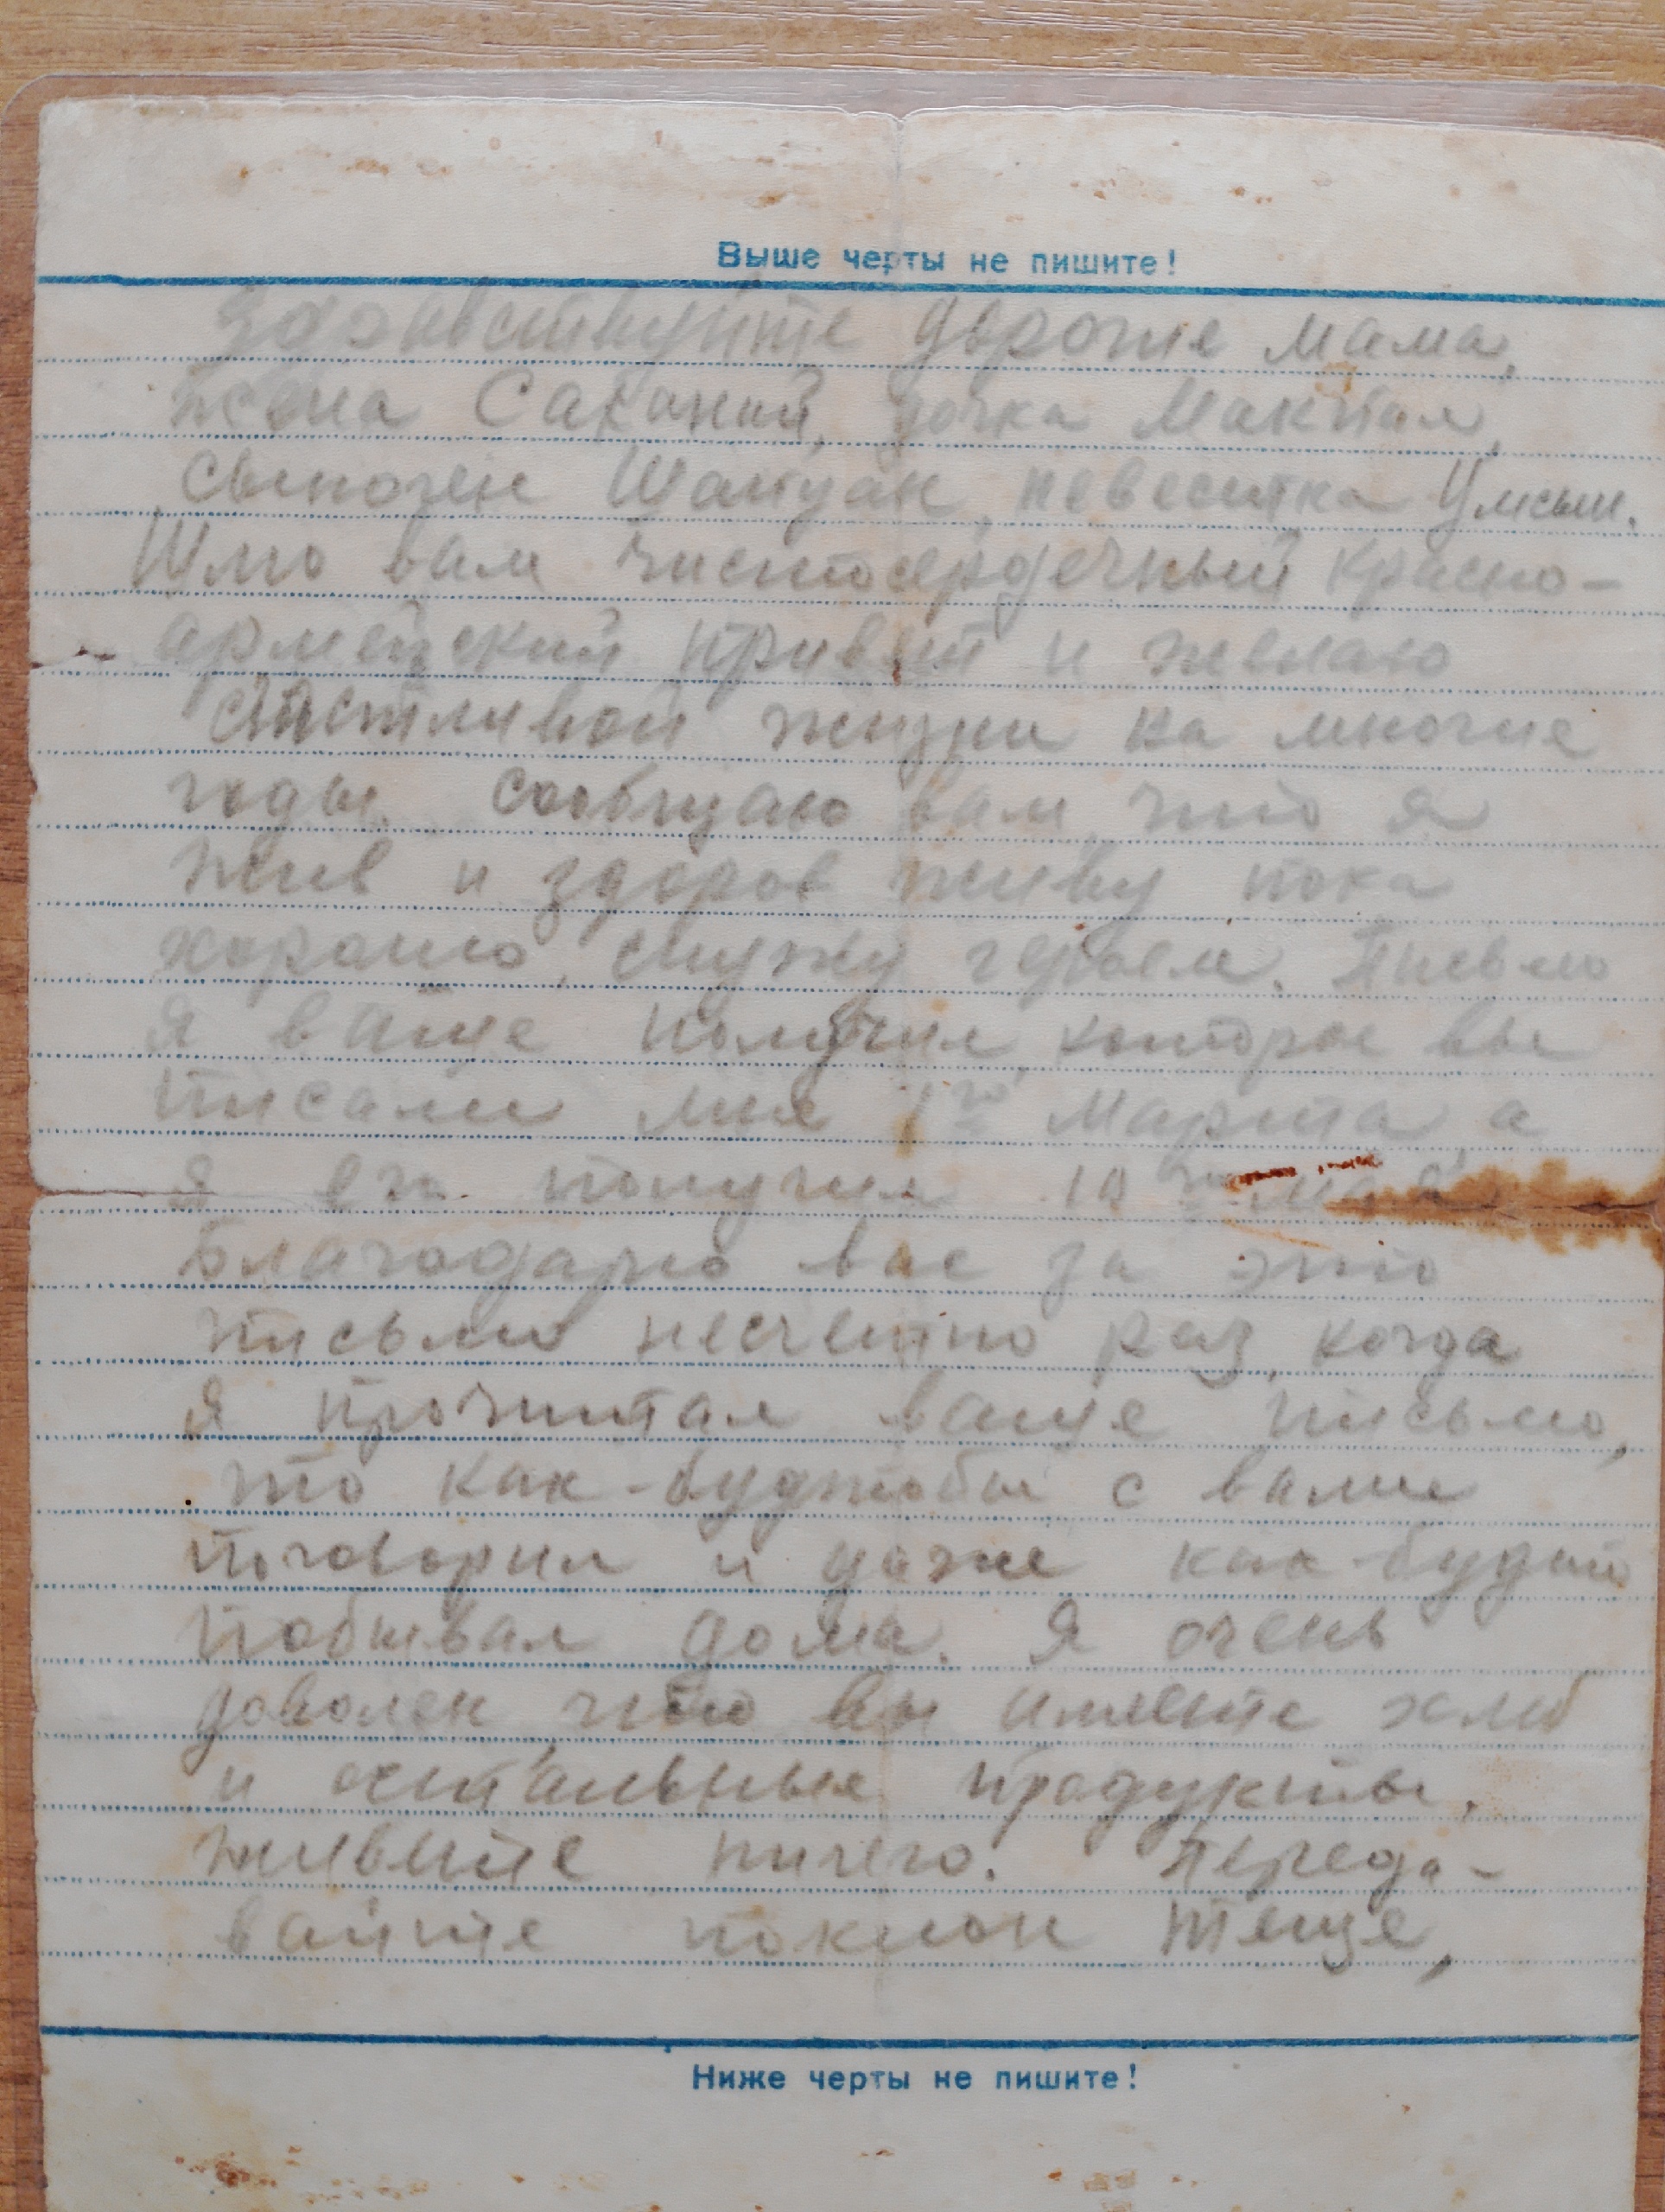 Выше черты не пишите!
Здравствуйте дорогие мама,
жена Саканай, дочка Макпал,
сыночек Шапуак, невестка Умсын.
Шлю вам чистосердечный красно-
армейский привет и желаю
счастливой жизни на многие
годы. Сообщаю вам, что я
жив и здоров живу пока
хорошо, служу героем. Письмо
я ваше получил, которое вы
писали мне 1го марта, а
я его получил 10го мая.
Благодарю вас за это
письмо несчетно раз, когда
я прочитал ваше письмо,
то как-будтобы с вами
поговорил и даже как-будто
побывал дома. Я очень
доволен что вы имеете хлеб
и остальные продукты.
живите ничего. Переда-
вайте поклон теще,
Ниже черты не пишите!